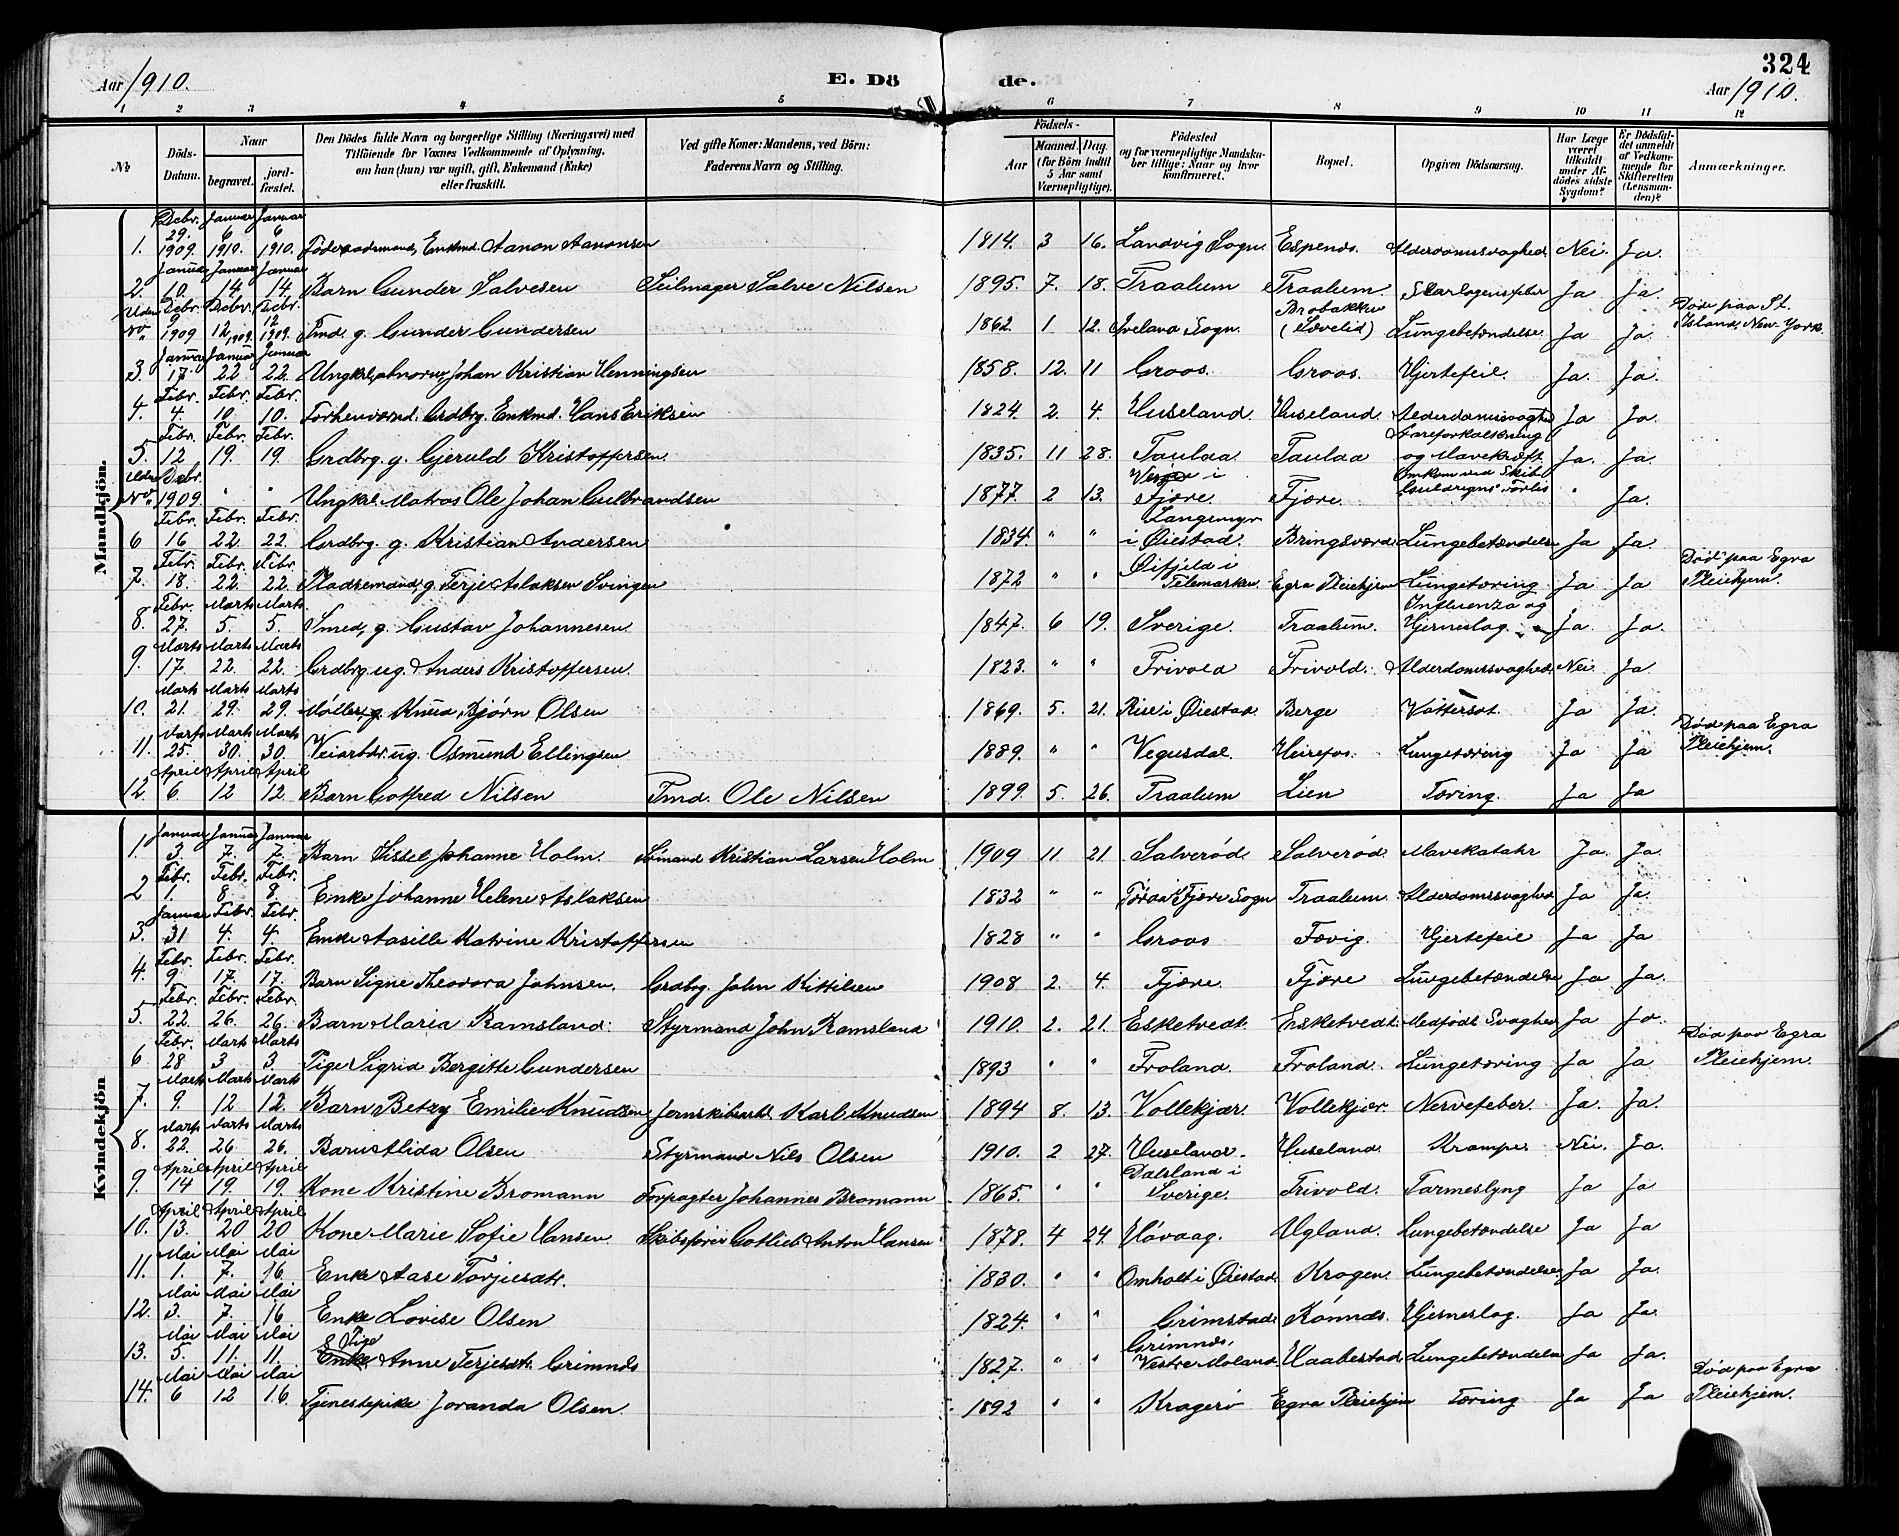 324
Aar 1910. E. Dö de. Aar 1910.
1 2 3 4 5 6 7 8 9 10 11 12
No
Döds-Datum.
Naar
begravet. jordfæstet.
Den Dödes fulde Navn og borgerlige Stilling (Næringsvei) med Tilföiende for Voxnes Vedkommende af Oplysning, om han (hun) var ugift, gift, Enkemand (Enke) eller fraskilt.
Ved gifte Koner: Mandens, ved Börn: Faderens Navn og Stilling.
Födsels-
Aar Maaned. Dag. (for Börn indtil 5 Aar samt Værnepligtige).
Födested og for værnepligtige Mandskaber tillige: Naar og hvor konfirmeret.
Bopæl.
Opgiven Dödsaarsag.
Har Læge været tilkaldt under Afdödes sidste Sygdom?
Er Dödsfaldet anmeldt af Vedkommende for Skifteretten (Lensmanden)?
Anmærkninger.
Mandkjön.
1. Debr. 29. 1909. Januar 6 1910. Januar 6 1910. Föderaadsmand, Enkmd. Aanon Aanonsen 1814. 3 16. Landvig Sogn. Espenes. Alderdomssvaghed Nei. Ja.
2. Januar 10 Januar 14 Januar 14 Barn Gunder Salvesen Seilmager Salve Nilsen 1895. 7. 18. Traalum Traalum. Skarlagensfeber Ja Ja.
Uden No. Debr. 9 1909 Debr. 12 1909. Debr. 12 1909. Tmd. g. Gunder Gundersen 1862. 1 12. Iveland Sogn. Brobakken (Løvelid) Lungebetændelse. Ja Ja. Døde paa St. Island, New York.
3. Januar 17 Januar 22 Januar 22. Ungkrl. abnorm, Johan Kristian Henningsen 1858. 12. 11 Groos. Groos. Hjertefeil. Ja. Ja.
4. Febr. 4. Febr. 10. Febr. 10. Forhenværnd. Grdbrg. Enkmd. Hans Eriksen 1824. 2. 4. Huseland. Huseland. Alderdomssvaghed Ja Ja.
5. Febr. 12 Febr. 19. Febr. 19. Grdbrg. g. Gjeruld Kristoffersen 1835. 11 28. Taulaa Taulaa Aareforkalkning og Mavekræft. Ja. Ja.
Uden No. Debr. 1909. " " Ungkrl. Matros Ole Johan Gulbrandsen 1877. 2 13. i Fjære. Fjære. Omkom ved Skib Guldregns Forlis " Ja.
6 Febr. 16 Febr. 22. Febr. 22. Grdbrg. g. Kristian Andersen 1834. " " Langemyr i Øiestad. Bringsværd Lungebetændelse Ja Ja.
7. Febr. 18. Febr. 22. Febr. 22. Pladsemand, g. Terje Aslaksen Svingen 1872 " " Øifjeld i Telemarken. Egra Pleiehjem Lungetæring Ja Ja Död paa Egra Pleiehjem.
8. Febr. 27. Marts 5. Marts 5. Smed, g. Gustav Johannesen. 1847. 6 19. Sverige. Traalum. Influenza og Hjerneslag. Ja. Ja.
9. Marts 17 Marts 22 Marts 22. Grdbrg. ug. Anders Kristoffersen. 1823. " " Frivold Frivold. Alderdomssvaghed. Nei. Ja
10. Marts 21. Marts 29. Marts 29. Møller, g. Knud Bjørn Olsen 1869. 5. 21. Rise i Øiestad. Berge Vattersot. Ja Ja.
11. Marts 25. Marts 30. Marts 30. Veiarbdr. ug. Osmund Ellingsen 1889. " " Vegusdal. Heirefos. Lungetæring Ja Ja Død paa Egra Pleiehjem.
12. April 6. April 12 April 12. Barn Gotfred Nilsen Tmd. Ole Nilsen 1899. 5. 26. Traalum Lien Tæring. Ja Ja
Kvindekjön
1. Januar 3 Januar 7. Januar 7. Barn Sissel Johanne Holm. Sømand Kristian Larsen Holm 1909 11 21. Salverød. Salverød. Mavekatahr Ja. Ja.
2 Febr. 1. Febr. 8 Febr. 8. Enke Johanne Helene Aslaksen 1832 " " i Fjære Sogn Traalum. Alderdomssvaghed Ja Ja.
3. Januar 31 Febr. 4. Febr. 4. Enke Aasille Katrine Kristoffersen 1828 " " Groos Fævig. Hjertefeil Ja Ja
4. Febr. 9. Febr. 17. Febr. 17. Barn Signe Theodora Johnsen. Grdbrg. John Kittilsen 1908 2. 4. Fjære. Fjære Lungebetændelse Ja Ja.
5. Febr. 22. Febr. 26. Febr. 26. Barn Maria Ramsland. Styrmand John Ramsland 1910. 2. 21. Esketvedt. Eskedtvedt. Medfødt Svaghed Ja Ja.
6 Febr. 28 Marts 3 Marts 3. Pige Sigrid Bergitte Gundersen 1893 " " Froland. Froland. Lungetæring Ja Ja Død paa Egra Pleiehjem.
7. Marts 9. Marts 12 Marts 12. Barn Betzy Emilie Knudsen Jernskibsarb. Karl Knudsen 1894 8. 13. Vollekjær. Vollekjær. Nervefeber. Ja. Ja.
8. Marts 22. Marts 26 Marts 26. Barn Alida Olsen Styrmand Nils Olsen 1910. 2 27. Huseland. Huseland. Krampe. Nei. Ja.
9. April 14 April 19. April 19. Kone Kristine Bromann Forpagter Johannes Bromann 1865. " " Dalsland i Sverige. Frivold. Tarmeslyng Ja Ja
10. April 13. April 20 April 20 Kone Marie Sofie Hansen. Skibsfører Gotlieb Anton Hansen 1878. 4 24. Høvaag. Ugland. Lungebetændelse Ja Ja
11. Mai 1. Mai 7. Mai 16 Enke Aase Torjesdtr. 1830. " " Omholt i Øiestad. Kragen. Lungebetændelse Ja Ja.
12. Mai 3. Mai 7. Mai 16 Enke Lovise Olsen 1824. " " Grimstad. Rønnes. Hjerneslag. Ja Ja.
13. Mai 5. Mai 11. Mai 11. Enke Pige Anne Terjesdtr. Grimnes 1827. " " Grimnes, Vestre Moland. Haabestad Lungebetændelse Ja Ja.
14. Mai 6 Mai 12 Mai 16 Tjenestepike Joranda Olsen. 1892 " " Kragerø Egra Pleiehjem Tæring Ja Ja Død paa Egra Pleiehjem.